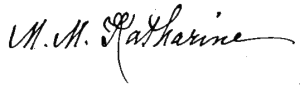 M. M. Katharine